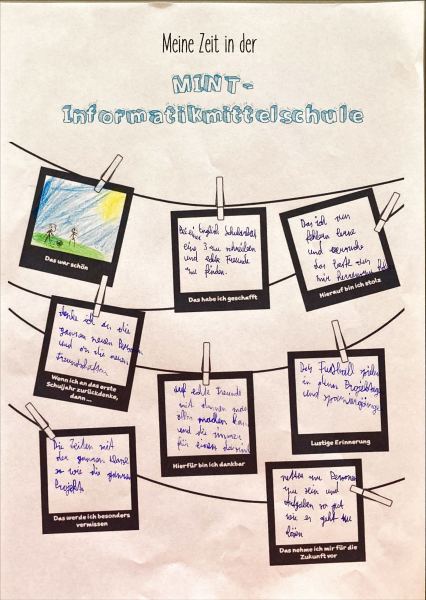 Meine Zeit in der
MINT-
Informatikmittelschule
Das war schön
Bei einer Englisch Schularbeit
eine 3 zu schreiben
und echte Freunde
zu finden.
Das habe ich geschafft
Das ich zum
lerne und
versuche
das beste zum
mir
Hierauf bin ich stolz
denke ich an die
ganzen neuen Personen
und an die neuen
Freundschaften.
Wenn ich an das erste
Schuljahr zurückdenke,
dann ...
auf echte Freunde
mit denen man
alles machen kann
und die immer
für einen da sind
Hierfür bin ich dankbar
Das Fußball spielen
in den Projekttagen
und
Lustige Erinnerung
Die Zeiten mit
der ganzen Klasse
so wie die ganzen
Projekte
Das werde ich besonders
vermissen
netter zu Personen
zu sein und
Aufgaben so gut
wie es geht zu
lösen
Das nehme ich mir für die
Zukunft vor